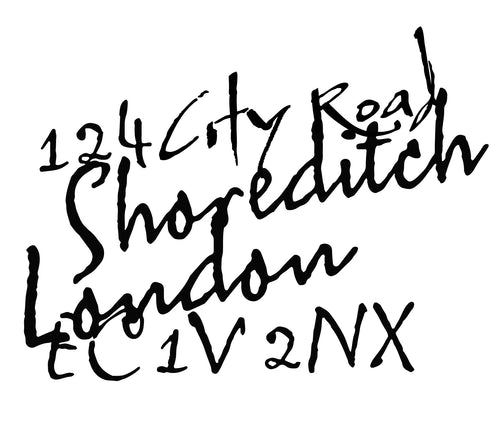 124 City Road
Shoreditch
London
EC1V 2NX